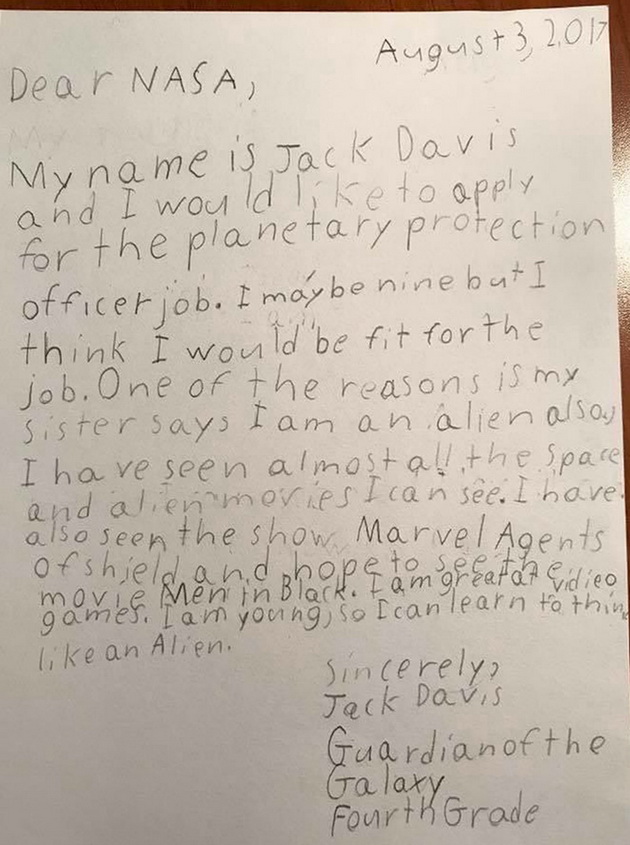 August 3, 2017
Dear NASA,
My name is Jack Davis
and I would like to apply
for the planetary protection
officer job. I may be nine but I
think I would be fit for the
job. One of the reasons is my
sister says I am an alien also,
I have seen almost all the space
and alien movies I can see. I have
also seen the show Marvel Agents
of shield and hope to see the
movie Men in Black. I am great at vidieo
games. I am young, so I can learn to think
like an Alien.
Sincerely,
Jack Davis
Guardian of the
Galaxy
Fourth Grade